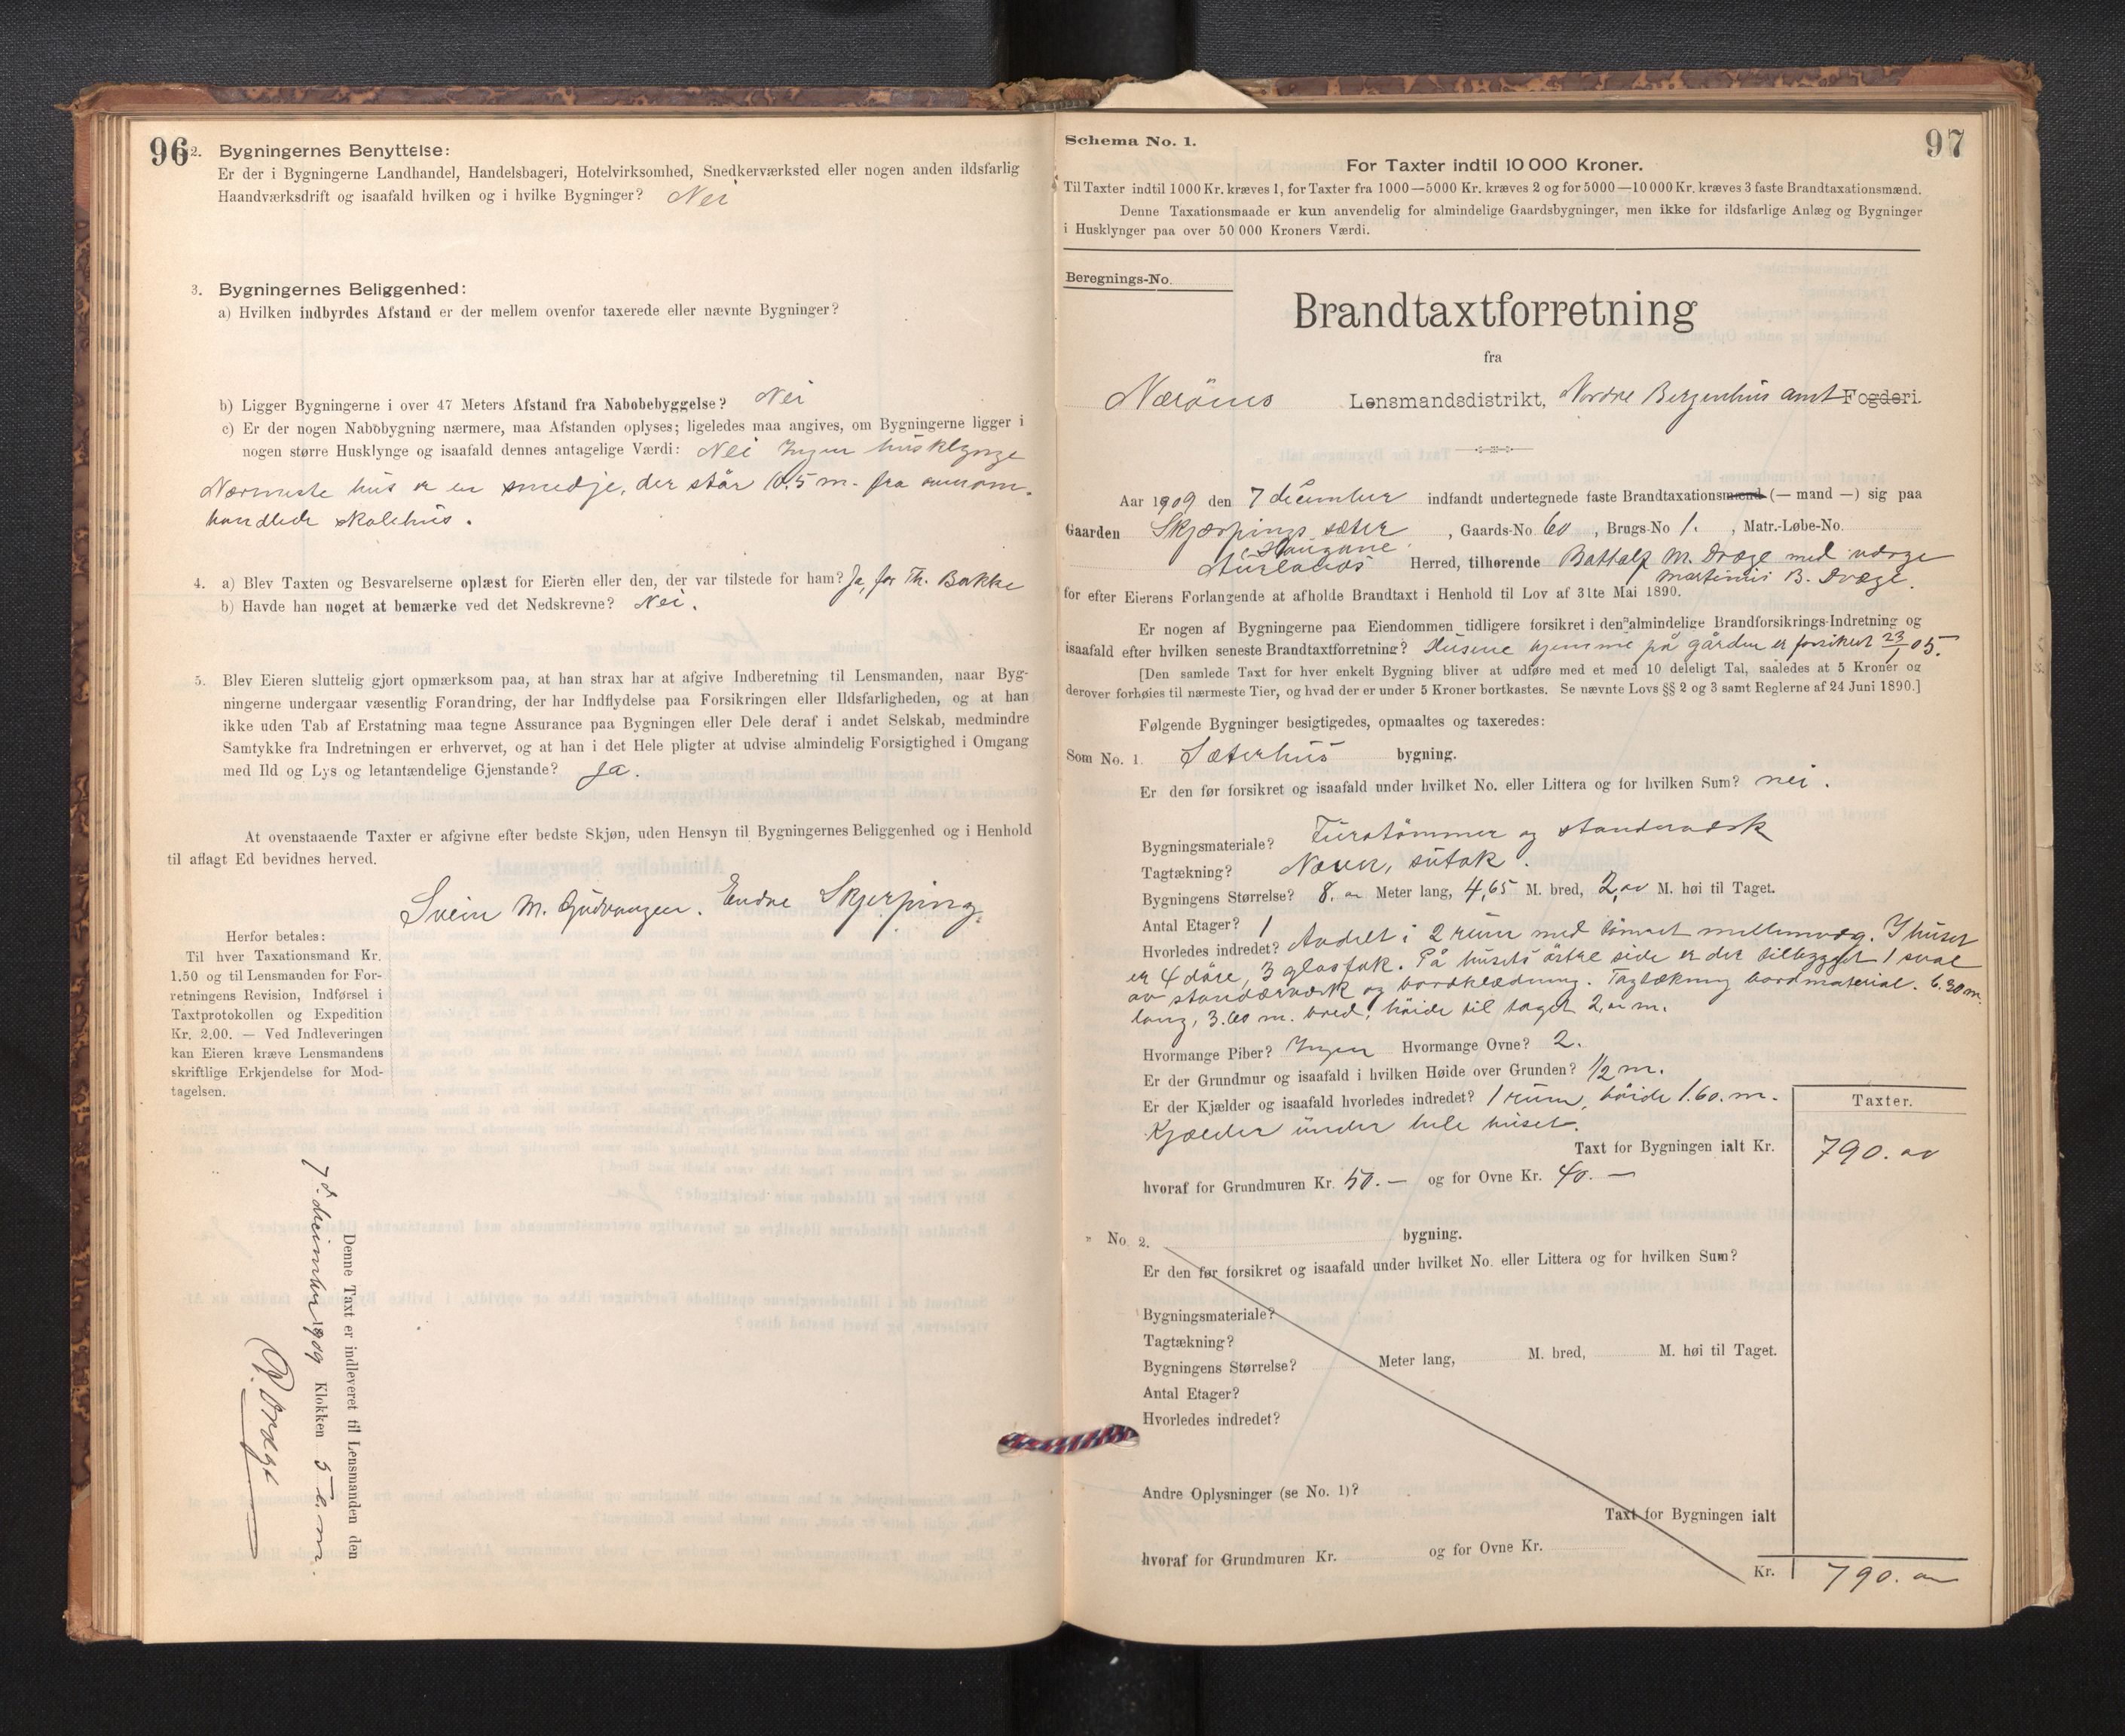 96
2. Bygningernes Benyttelse:
Er der i Bygningerne Landhandel, Handelsbageri, Hotelvirksomhed, Snedkerværksted eller nogen anden ildsfarlig
Haandværksdrift og isaafald hvilken og i hvilke Bygninger? Nei
3. Bygningernes Beliggenhed:
a) Hvilken indbyrdes Afstand er der mellem ovenfor taxerede eller nævnte Bygninger?
b) Ligger Bygningerne i over 47 Meters Afstand fra Nabobebyggelse? Nei
c) Er der nogen Nabobygning nærmere, maa Afstanden oplyses; ligeledes maa angives, om Bygningerne ligger i
nogen større Husklynge og isaafald dennes antagelige Værdi: Nei Ingen husklynge
Nærmeste hus er en smedje, der står 10.5 m. fra omhandlede skolehus.
4. a) Blev Taxten og Besvarelserne oplæst for Eieren eller den, der var tilstede for ham? Ja, for Th. Bakke
b) Havde han noget at bemærke ved det Nedskrevne? Nei.
5. Blev Eieren sluttelig gjort opmærksom paa, at han strax har at afgive Indberetning til Lensmanden, naar Byg-
ningerne undergaar væsentlig Forandring, der har Indflydelse paa Forsikringen eller Ildsfarligheden, og at han
ikke uden Tab af Erstatning maa tegne Assurance paa Bygningen eller Dele deraf i andet Selskab, medmindre
Samtykke fra Indretningen er erhvervet, og at han i det Hele pligter at udvise almindelig Forsigtighed i Omgang
med Ild og Lys og letantændelige Gjenstande? Ja.
At ovenstaaende Taxter er afgivne efter bedste Skjøn, uden Hensyn til Bygningernes Beliggenhed og i Henhold
til aflagt Ed bevidnes herved.
Svein M. Gudvangen. Endre Skjerping.
Herfor betales:
Til hver Taxationsmand Kr.
1.50 og til Lensmanden for For-
retningens Revision, Indførsel i
Taxtprotokollen og Expedition
Kr. 2.00. — Ved Indleveringen
kan Eieren kræve Lensmandens
skriftlige Erkjendelse for Mod-
tagelsen.
Denne Taxt er indleveret til Lensmanden den
7d. december 1909 Klokken 5 e. m.
97
Schema No. 1.
For Taxter indtil 10 000 Kroner.
Til Taxter indtil 1000 Kr. kræves 1, for Taxter fra 1000—5000 Kr. kræves 2 og for 5000—10 000 Kr. kræves 3 faste Brandtaxationsmænd.
Denne Taxationsmaade er kun anvendelig for almindelige Gaardsbygninger, men ikke for ildsfarlige Anlæg og Bygninger
i Husklynger paa over 50 000 Kroners Værdi.
Beregnings-No.
Brandtaxtforretning
fra
Nærönes Lensmandsdistrikt, Nordre Bergenhus amt Fogderi.
Aar 1909 den 7 december indfandt undertegnede faste Brandtaxationsmænd (— mand —) sig paa
Gaarden Skjærpings sæter , Gaards-No. 60 , Brugs-No 1. , Matr.-Løbe-No.
Aurlands Herred, tilhørende Bathalf M. Dræge med værge
Martinus B. Dræge.
for efter Eierens Forlangende at afholde Brandtaxt i Henhold til Lov af 31te Mai 1890.
Er nogen af Bygningerne paa Eiendommen tidligere forsikret i den almindelige Brandforsikrings-Indretning og
isaafald efter hvilken seneste Brandtaxtforretning? Husene hjemme på gården er forsikret 23/1 05.
[Den samlede Taxt for hver enkelt Bygning bliver at udføre med et med 10 deleligt Tal, saaledes at 5 Kroner og
derover forhøies til nærmeste Tier, og hvad der er under 5 Kroner bortkastes. Se nævnte Lovs §§ 2 og 3 samt Reglerne af 24 Juni 1890.]
Følgende Bygninger besigtigedes, opmaaltes og taxeredes:
Som No. 1. Sæterhus bygning.
Er den før forsikret og isaafald under hvilket No. eller Littera og for hvilken Sum? nei.
Bygningsmateriale? Furutömmer og standerværk
Tagtækning? Næver, sutak.
Bygningens Størrelse? 8. Meter lang, 4,65 M. bred, 2, M. høi til Taget.
Antal Etager? 1
Hvorledes indredet? Avdelt i 2 rum med tömret mellemvæg. I huset
er 4 döre, 3 glasfak. På husets östre side er der tilbygget 1 sval
av standerværk og bordklædning. Tagtækning bordmaterial. 6.30 m.
lang, 3.60 m. bred, höide til taget 2, m.
Hvormange Piber? Ingen Hvormange Ovne? 2.
Er der Grundmur og isaafald i hvilken Høide over Grunden? 1/2 m.
Er der Kjælder og isaafald hvorledes indredet? 1 rum, höide 1.60. m.
Kjælder under hele huset.
Taxter.
Taxt for Bygningen ialt Kr. 790.
hvoraf for Grundmuren Kr. 50. — og for Ovne Kr. 40. —
" No. 2. bygning.
Er den før forsikret og isaafald under hvilket No. eller Littera og for hvilken Sum?
Bygningsmateriale?
Tagtækning?
Bygningens Størrelse? Meter lang, M. bred, M. høi til Taget.
Antal Etager?
Hvorledes indredet?
Andre Oplysninger (se No. 1)?
Taxt for Bygningen ialt
hvoraf for Grundmuren Kr. og for Ovne Kr.
Kr. 790.